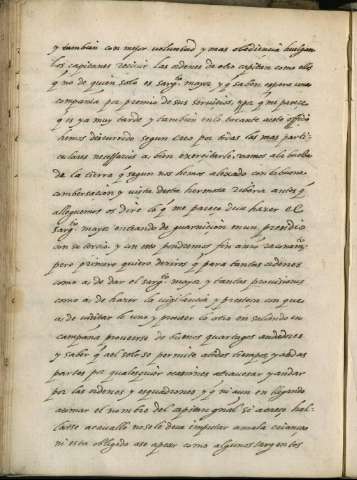 y tambien con mejor voluntad y mas obediencia huelgan
los capitanes recivir las ordenes de otro capitan como ellos
q̃ no de quien solo es sargᵗᵒ mayor y q̃ saben espera una
compañia por premio de sus servicios, y pq̃ me parece
q̃ es ya muy tarde y tambien en lo tocante a este officio
hemos discurrido segun creo por todas las mas parti-
culares necessarias a bien exercitarlo, vamos a la buelta
de la tierra q̃ segun nos hemos alexado con la buena
combersacion y vista desta hermosa ribera antes q̃
alleguemos os diré lo q̃ me parece deve hazer el
sargᵗᵒ mayor entrando de guarnicion en un presidio
con su tercio. y con esto pondremos fin a
pero primero quiero deziros q̃ para tantas ordenes
como a de dar el sargᵗᵒ mayor y tantas provisiones
como a de hazer la vigilancia y presteza con que
a de visitar lo uno y proveer lo otro en saliendo en
campaña proverse de buenos quartagos andadores
y saber q̃ a el solo se permite a todos tiempos y a todas
partes por qualesquier ocasiones atravesar y andar
por las ordenes y esquadrones y q̃ ni aun en llegando
a tomar el nombre del capitan gnal si acaso hal-
lasse a cavallo no se le deva imputar a mala crianza
ni esta obligado a se apear como algunos sargentos